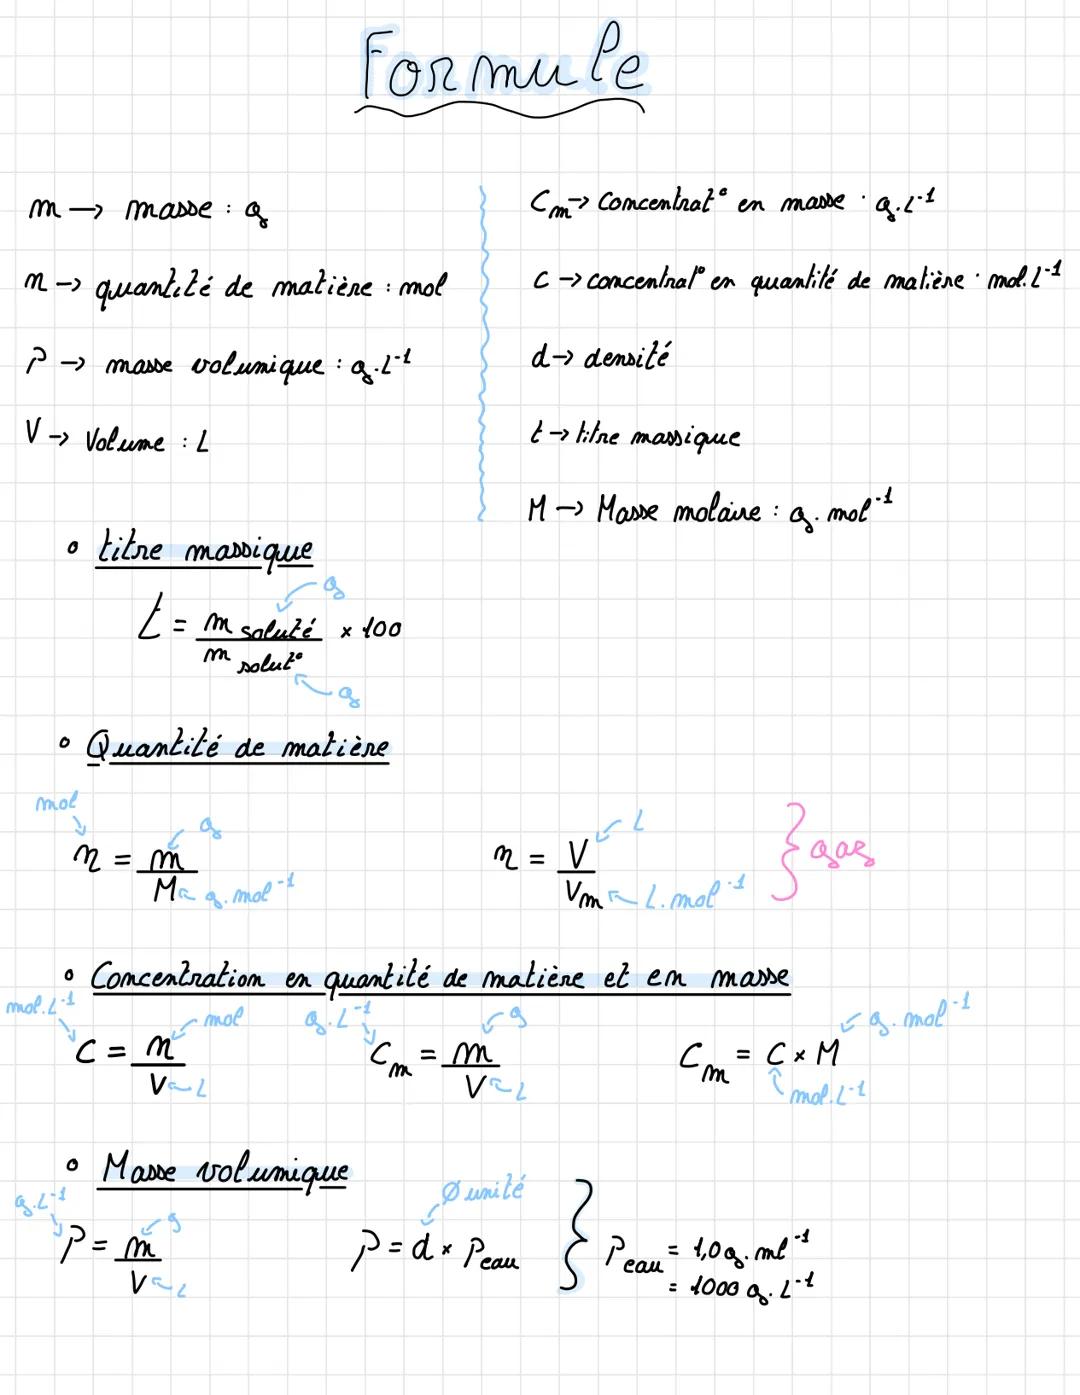 Formule
m → masse : g
n → quantité de matière : mol
ρ → masse volumique : g.L⁻¹
V → Volume : L
Cm → Concentrat° en masse : g.L⁻¹
C → concentrat° en quantité de matière : mol.L⁻¹
d → densité
t → titre massique
M → Masse molaire : g.mol⁻¹
• titre massique
g
t = m soluté / m solut° × 100
g
• Quantité de matière
mol g L
n = m / M n = V / Vm } gaz
g.mol⁻¹ L.mol⁻¹
• Concentration en quantité de matière et en masse
mol.L⁻¹ mol g.L⁻¹ g g.mol⁻¹
C = n / V Cm = m / V Cm = C × M
L L mol.L⁻¹
• Masse volumique
g.L⁻¹ g Ø unité
ρ = m / V ρ = d × ρeau } ρeau = 1,0 g.ml⁻¹
L = 1000 g.L⁻¹